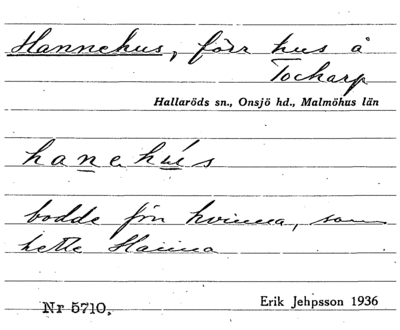 Hannehus, förr hus å
Tockarp
Hallaröds sn., Onsjö hd., Malmöhus län
hanehús
bodde från kvinna, som
hette Hanna
Nr 5710. Erik Jehpsson 1936